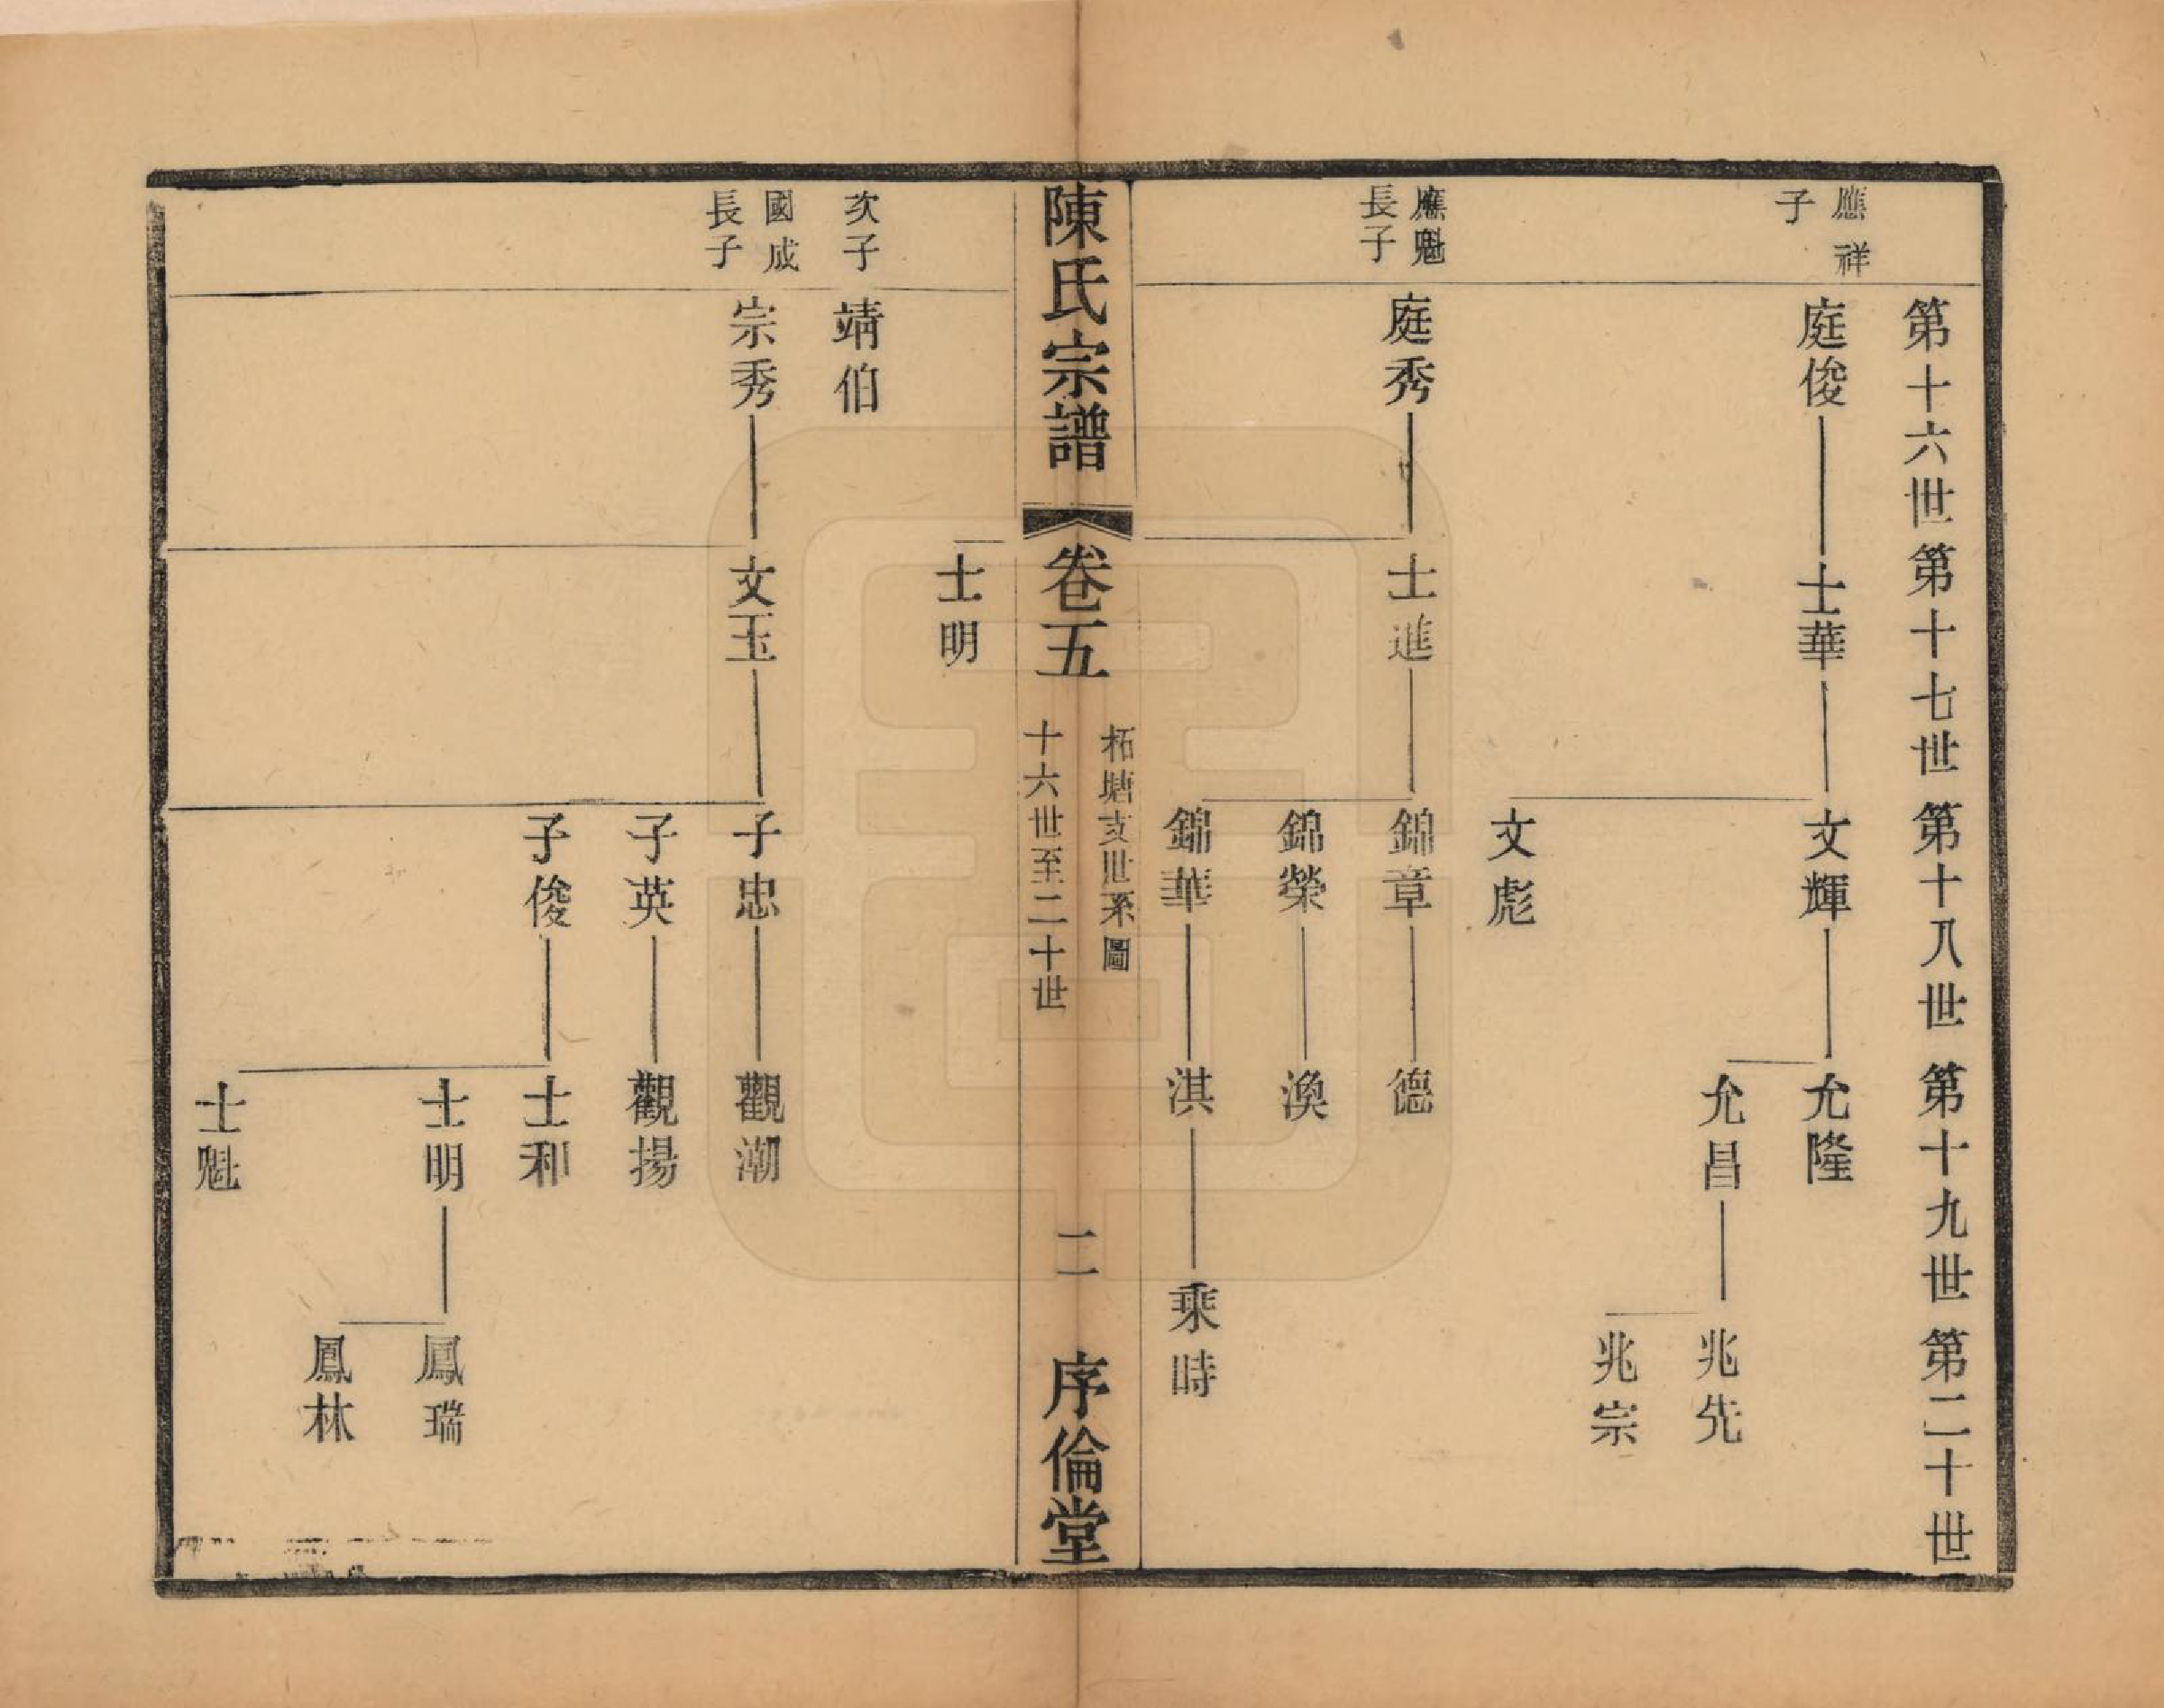 第十六世 第十七世 第十八世 第十九世 第二十世
應祥
子
庭俊
士華
文輝
允隆
允昌
兆先
兆宗
文彪
應魁
長子
庭秀
士進
錦章
德
錦榮
渙
錦華
淇
乘時
陳氏宗譜
卷五
柘塘支世系圖
十六世至二十世
二
序倫堂
士明
次子
靖伯
國成
長子
宗秀
文玉
子忠
觀潮
子英
觀揚
子俊
士和
士明
鳳瑞
鳳林
士魁